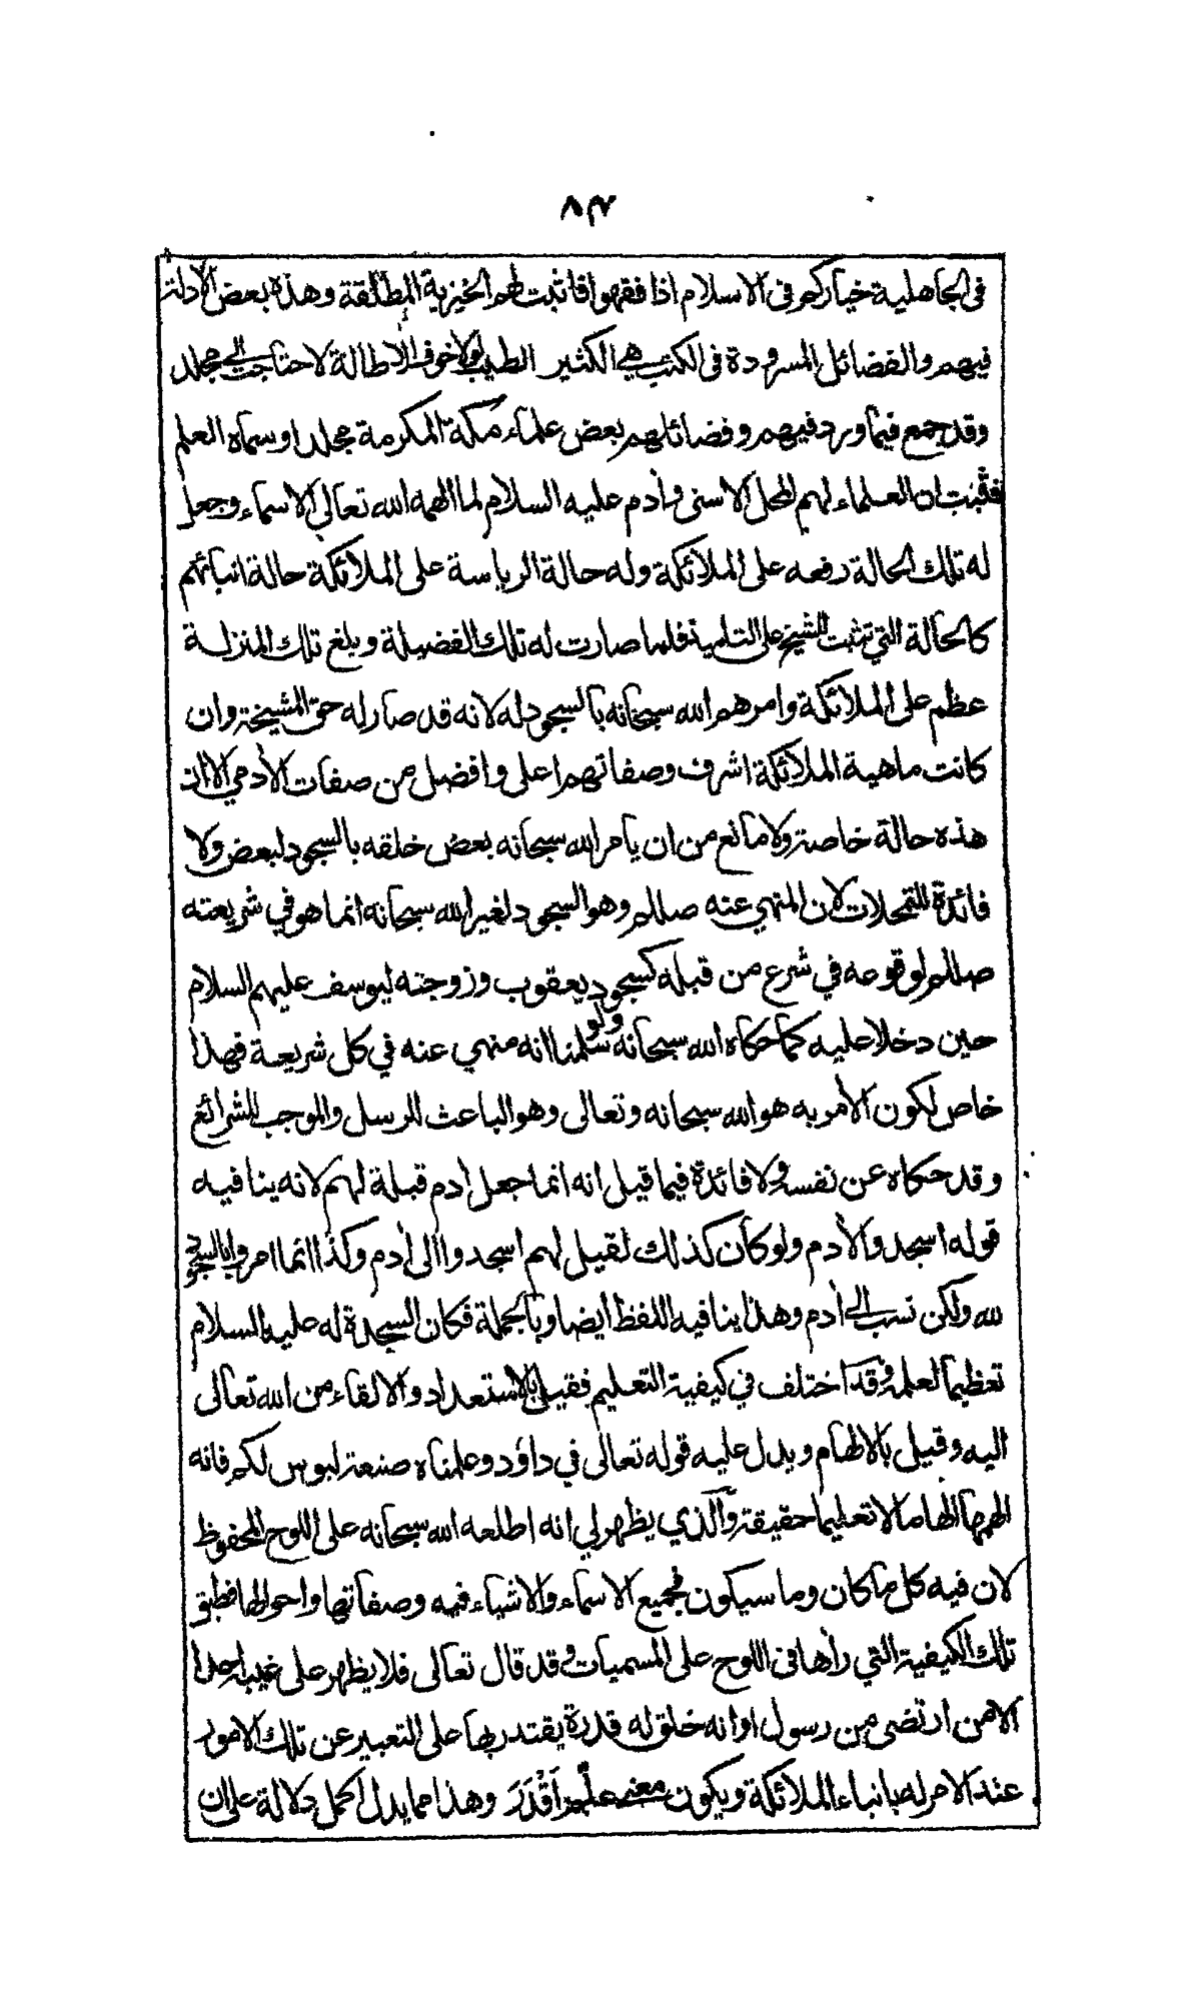 ٨٣
في الجاهلية خياركم في الاسلام اذا فقهوا فاثبت لهم الخيرية المطلقة وهذه بعض الادلة
فيهم والفضائل المسرودة في الكتب هي الكثير الطيب ولولا خوف الاطالة لاحتاجت الى مجلد
وقد جمع فيما ورد فيهم وفضائلهم بعض علماء مكة المكرمة مجلدا وسماه العلم
فثبت ان العلماء لهم المحل الاسنى وأدم عليه السلام لما الهمه الله تعالى الاسماء وجعل
له تلك الحالة رفعه على الملائكة وله حالة الرياسة على الملائكة حالة انبائهم
كالحالة التي تثبت للشيخ على التلميذ فلما صارت له تلك الفضيلة وبلغ تلك المنزلة
عظم على الملائكة وامرهم الله سبحانه بالسجود له لانه قد صار له حق المشيخة وان
كانت ماهية الملائكة اشرف وصفاتهم اعلى وافضل من صفات الأدمي الا ان
هذه حالة خاصة ولا مانع من ان يامر الله سبحانه بعض خلقه بالسجود لبعض ولا
فائدة للتمحلات لان المنهي عنه صللم وهو السجود لغير الله سبحانه انما هو في شريعته
صللم لوقوعه في شرع من قبله كسجود يعقوب وزوجته ليوسف عليهم السلام
حين دخلا عليه كما حكاه الله سبحانه ولو سلمنا انه منهي عنه في كل شريعة فهذا
خاص لكون الأمر به هو الله سبحانه وتعالى وهو الباعث للرسل والموجب للشرائع
وقد حكاه عن نفسه ولا فائدة فيما قيل انه انما جعل أدم قبلة لهم لانه ينافيه
قوله اسجدوا لأدم ولو كان كذلك لقيل لهم اسجدوا الى أدم وكذا انما امروا بالسجود
لله ولكن نسب الى أدم وهذا ينافيه اللفظ ايضا وبالجملة فكان السجدة له عليه السلام
تعظيما لعلمه وقد اختلف في كيفية التعليم فقيل بالاستعداد والالقاء من الله تعالى
اليه وقيل بالالهام ويدل عليه قوله تعالى في داؤد وعلمناه صنعة لبوس لكم فانه
الهمها الهاما لا تعليما حقيقة والذي يظهر لي انه اطلعه الله سبحانه على اللوح المحفوظ
لان فيه كل ما كان وما سيكون فجميع الاسماء والاشياء فيه وصفاتها واحوالها فطبق
تلك الكيفية التي رأها في اللوح على المسميات وقد قال تعالى فلا يظهر على غيبه احدا
الا من ارتضى من رسول او انه خلق له قدرة يقتدر بها على التعبير عن تلك الامور
عند الامر له بانباء الملائكة ويكون معنى علم اَقْدَرَ وهذا مما يدل اكمل دلالة على ان